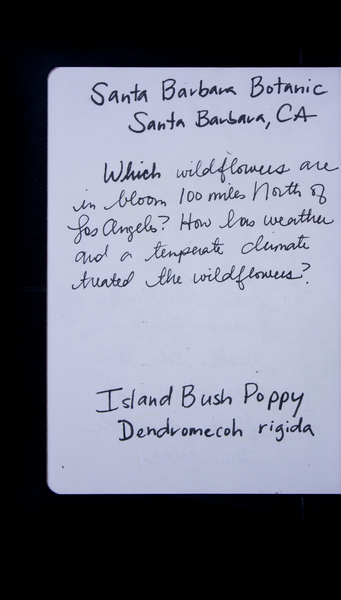 Santa Barbara Botanic
Santa Barbara, CA
Which wildflowers are
in bloom 100 miles North of
Los Angeles? How has weather
and a temperate climate
treated the wildflowers?
Island Bush Poppy
Dendromecoh rigida